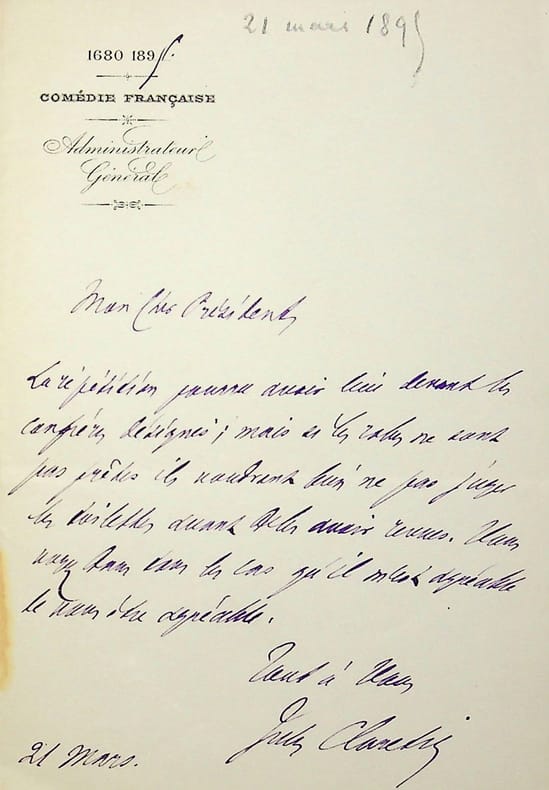 21 mars 1895
1680 1895.
COMÉDIE FRANÇAISE
Administrateur
Général
Mon Cher Président,
La répétition pourra avoir lieu devant les
confrères désignés; mais si les robes ne sont
pas prêtes ils voudront bien ne pas juger
les toilettes avant de les avoir vues. Vous
voyez dans tous les cas qu'il m'est agréable
de vous être agréable.
Tout à Vous
Jules Claretie
21 Mars.